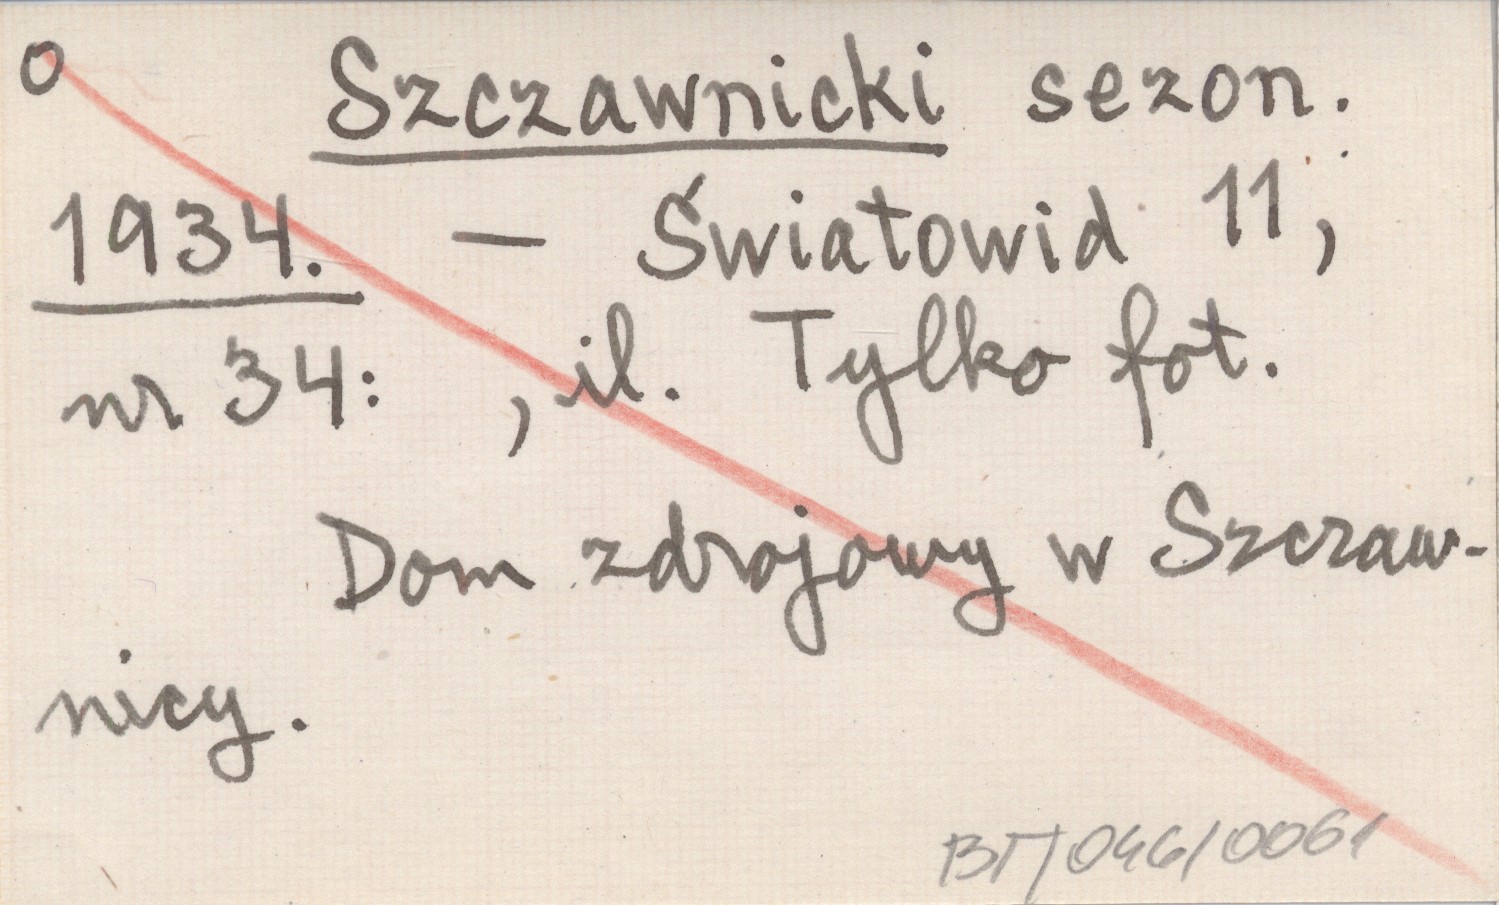 o Szczawnicki sezon.
1934. — Światowid 11,
nr 34: , il. Tylko fot.
Dom zdrojowy w Szczaw-
nicy.
BT/046/0061